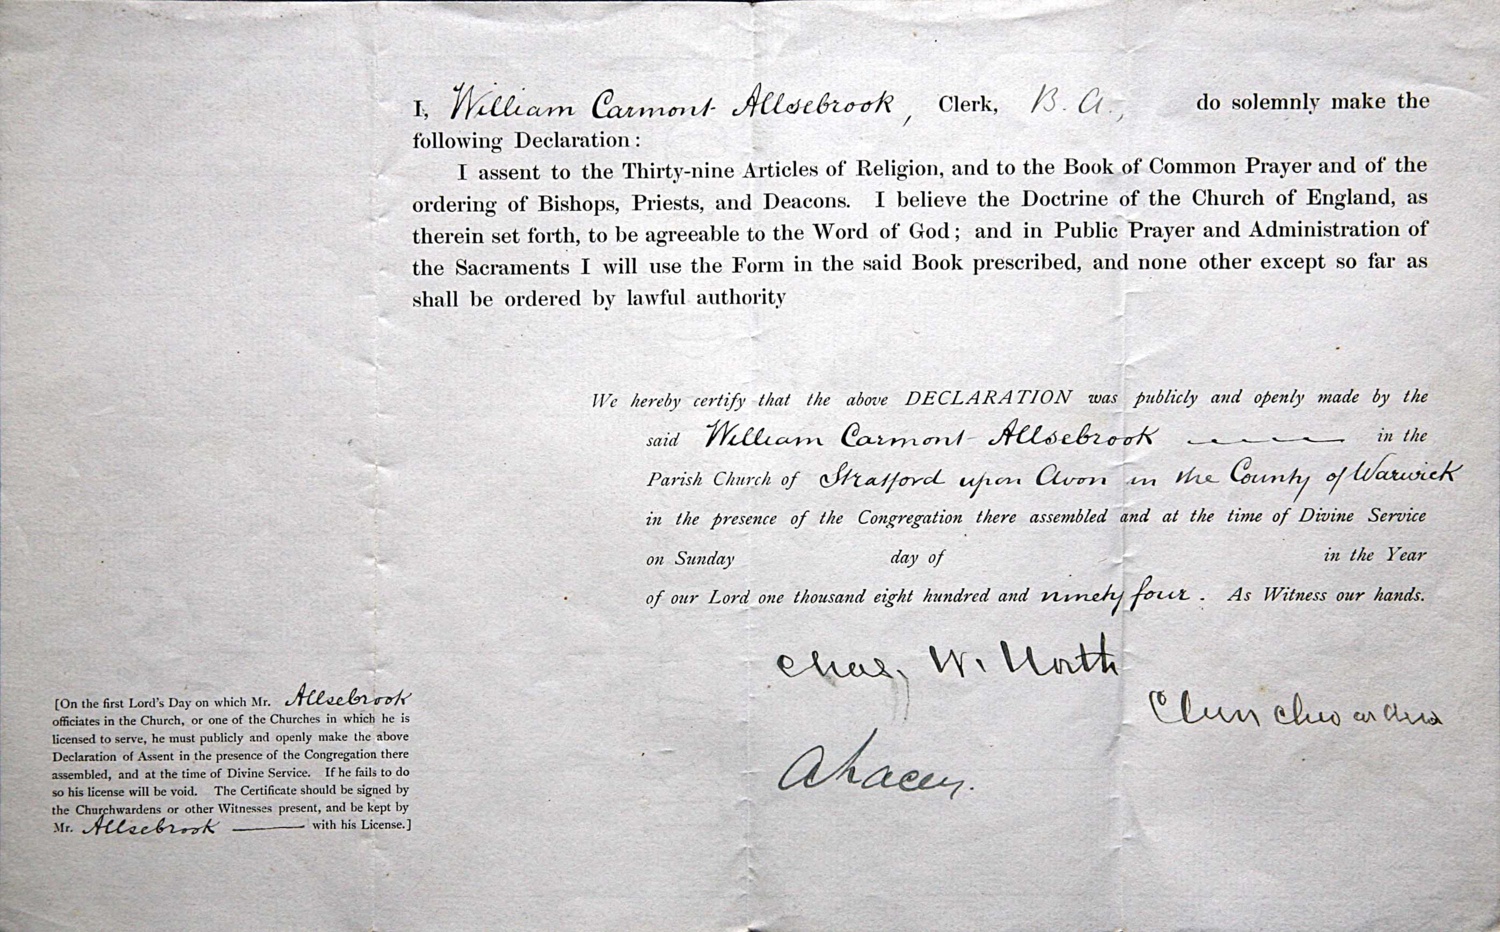 I, William Carmont Allsebrook, Clerk, B. A., do solemnly make the
following Declaration:
I assent to the Thirty-nine Articles of Religion, and to the Book of Common Prayer and of the
ordering of Bishops, Priests, and Deacons. I believe the Doctrine of the Church of England, as
therein set forth, to be agreeable to the Word of God; and in Public Prayer and Administration of
the Sacraments I will use the Form in the said Book prescribed, and none other except so far as
shall be ordered by lawful authority
We hereby certify that the above DECLARATION was publicly and openly made by the
said William Carmont Allsebrook in the
Parish Church of Stratford upon Avon in the County of Warwick
in the presence of the Congregation there assembled and at the time of Divine Service
on Sunday day of in the Year
of our Lord one thousand eight hundred and ninety four. As Witness our hands.
Chas. W. North
Churchwardens
A Lacey.
[On the first Lord's Day on which Mr. Allsebrook
officiates in the Church, or one of the Churches in which he is
licensed to serve, he must publicly and openly make the above
Declaration of Assent in the presence of the Congregation there
assembled, and at the time of Divine Service. If he fails to do
so his license will be void. The Certificate should be signed by
the Churchwardens or other Witnesses present, and be kept by
Mr. Allsebrook with his License.]